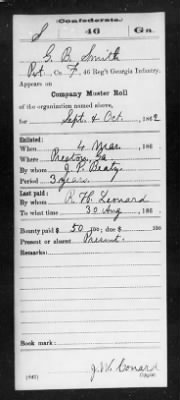 (Confederate.)
S 46 Ga.
G. B. Smith
Pvt., Co. F, 46 Reg't Georgia Infantry.
Appears on
Company Muster Roll
of the organization named above,
for Sept. & Oct., 1862
Enlisted:
When 4 Mar, 186 .
Where Preston, Ga
By whom J. P. Beaty
Period 3 years.
Last paid:
By whom R. H. Leonard
To what time 30 Aug, 186 .
Bounty paid $ 50 /100; due $ /100
Present or absent Present.
Remarks:
Book mark:
J. W. Conard
(642) Copyist.